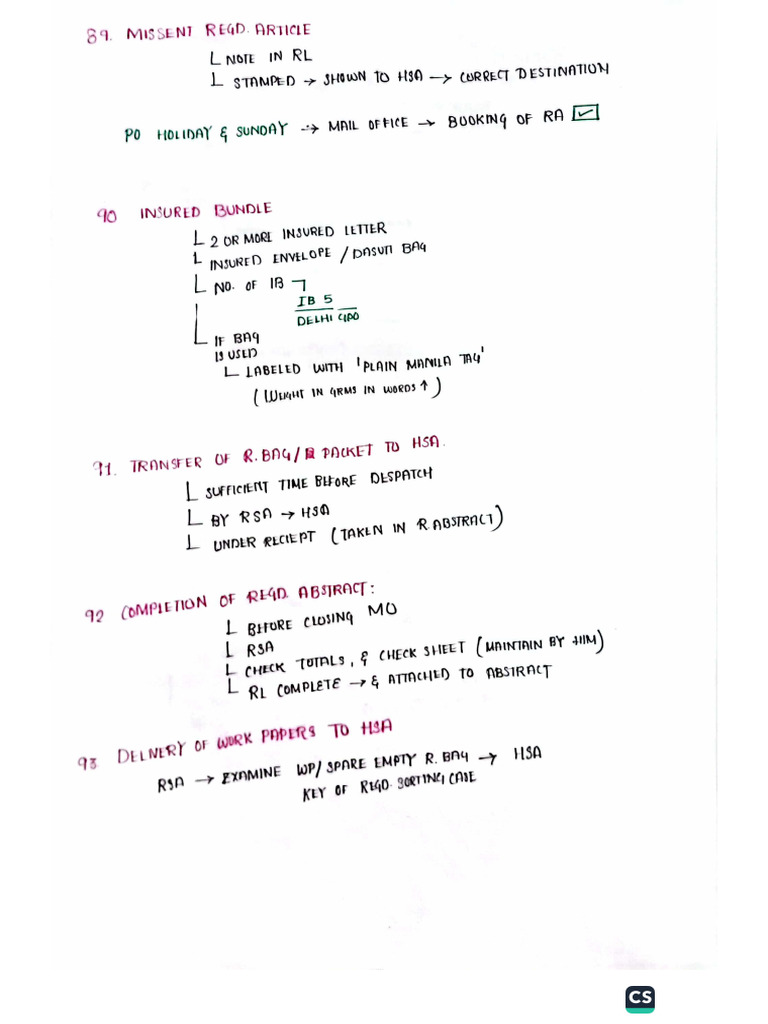 89. MISSENT REGD. ARTICLE
NOTE IN RL
STAMPED → SHOWN TO HSA → CORRECT DESTINATION
PO HOLIDAY & SUNDAY → MAIL OFFICE → BOOKING OF RA
90 INSURED BUNDLE
2 OR MORE INSURED LETTER
INSURED ENVELOPE / DASUTI BAG
NO. OF IB
IB 5
DELHI GPO
IF BAG
IS USED
LABELED WITH 'PLAIN MANILA TAG'
(WEIGHT IN GRMS IN WORDS ↑)
91. TRANSFER OF R. BAG / R PACKET TO HSA.
SUFFICIENT TIME BEFORE DESPATCH
BY RSA → HSA
UNDER RECIEPT (TAKEN IN R ABSTRACT)
92 COMPLETION OF REGD. ABSTRACT:
BEFORE CLOSING MO
RSA
CHECK TOTALS, & CHECK SHEET (MAINTAIN BY HIM)
RL COMPLETE → & ATTACHED TO ABSTRACT
93 DELIVERY OF WORK PAPERS TO HSA
RSA → EXAMINE WP/ SPARE EMPTY R. BAG → HSA
KEY OF REGD. SORTING CASE
CS